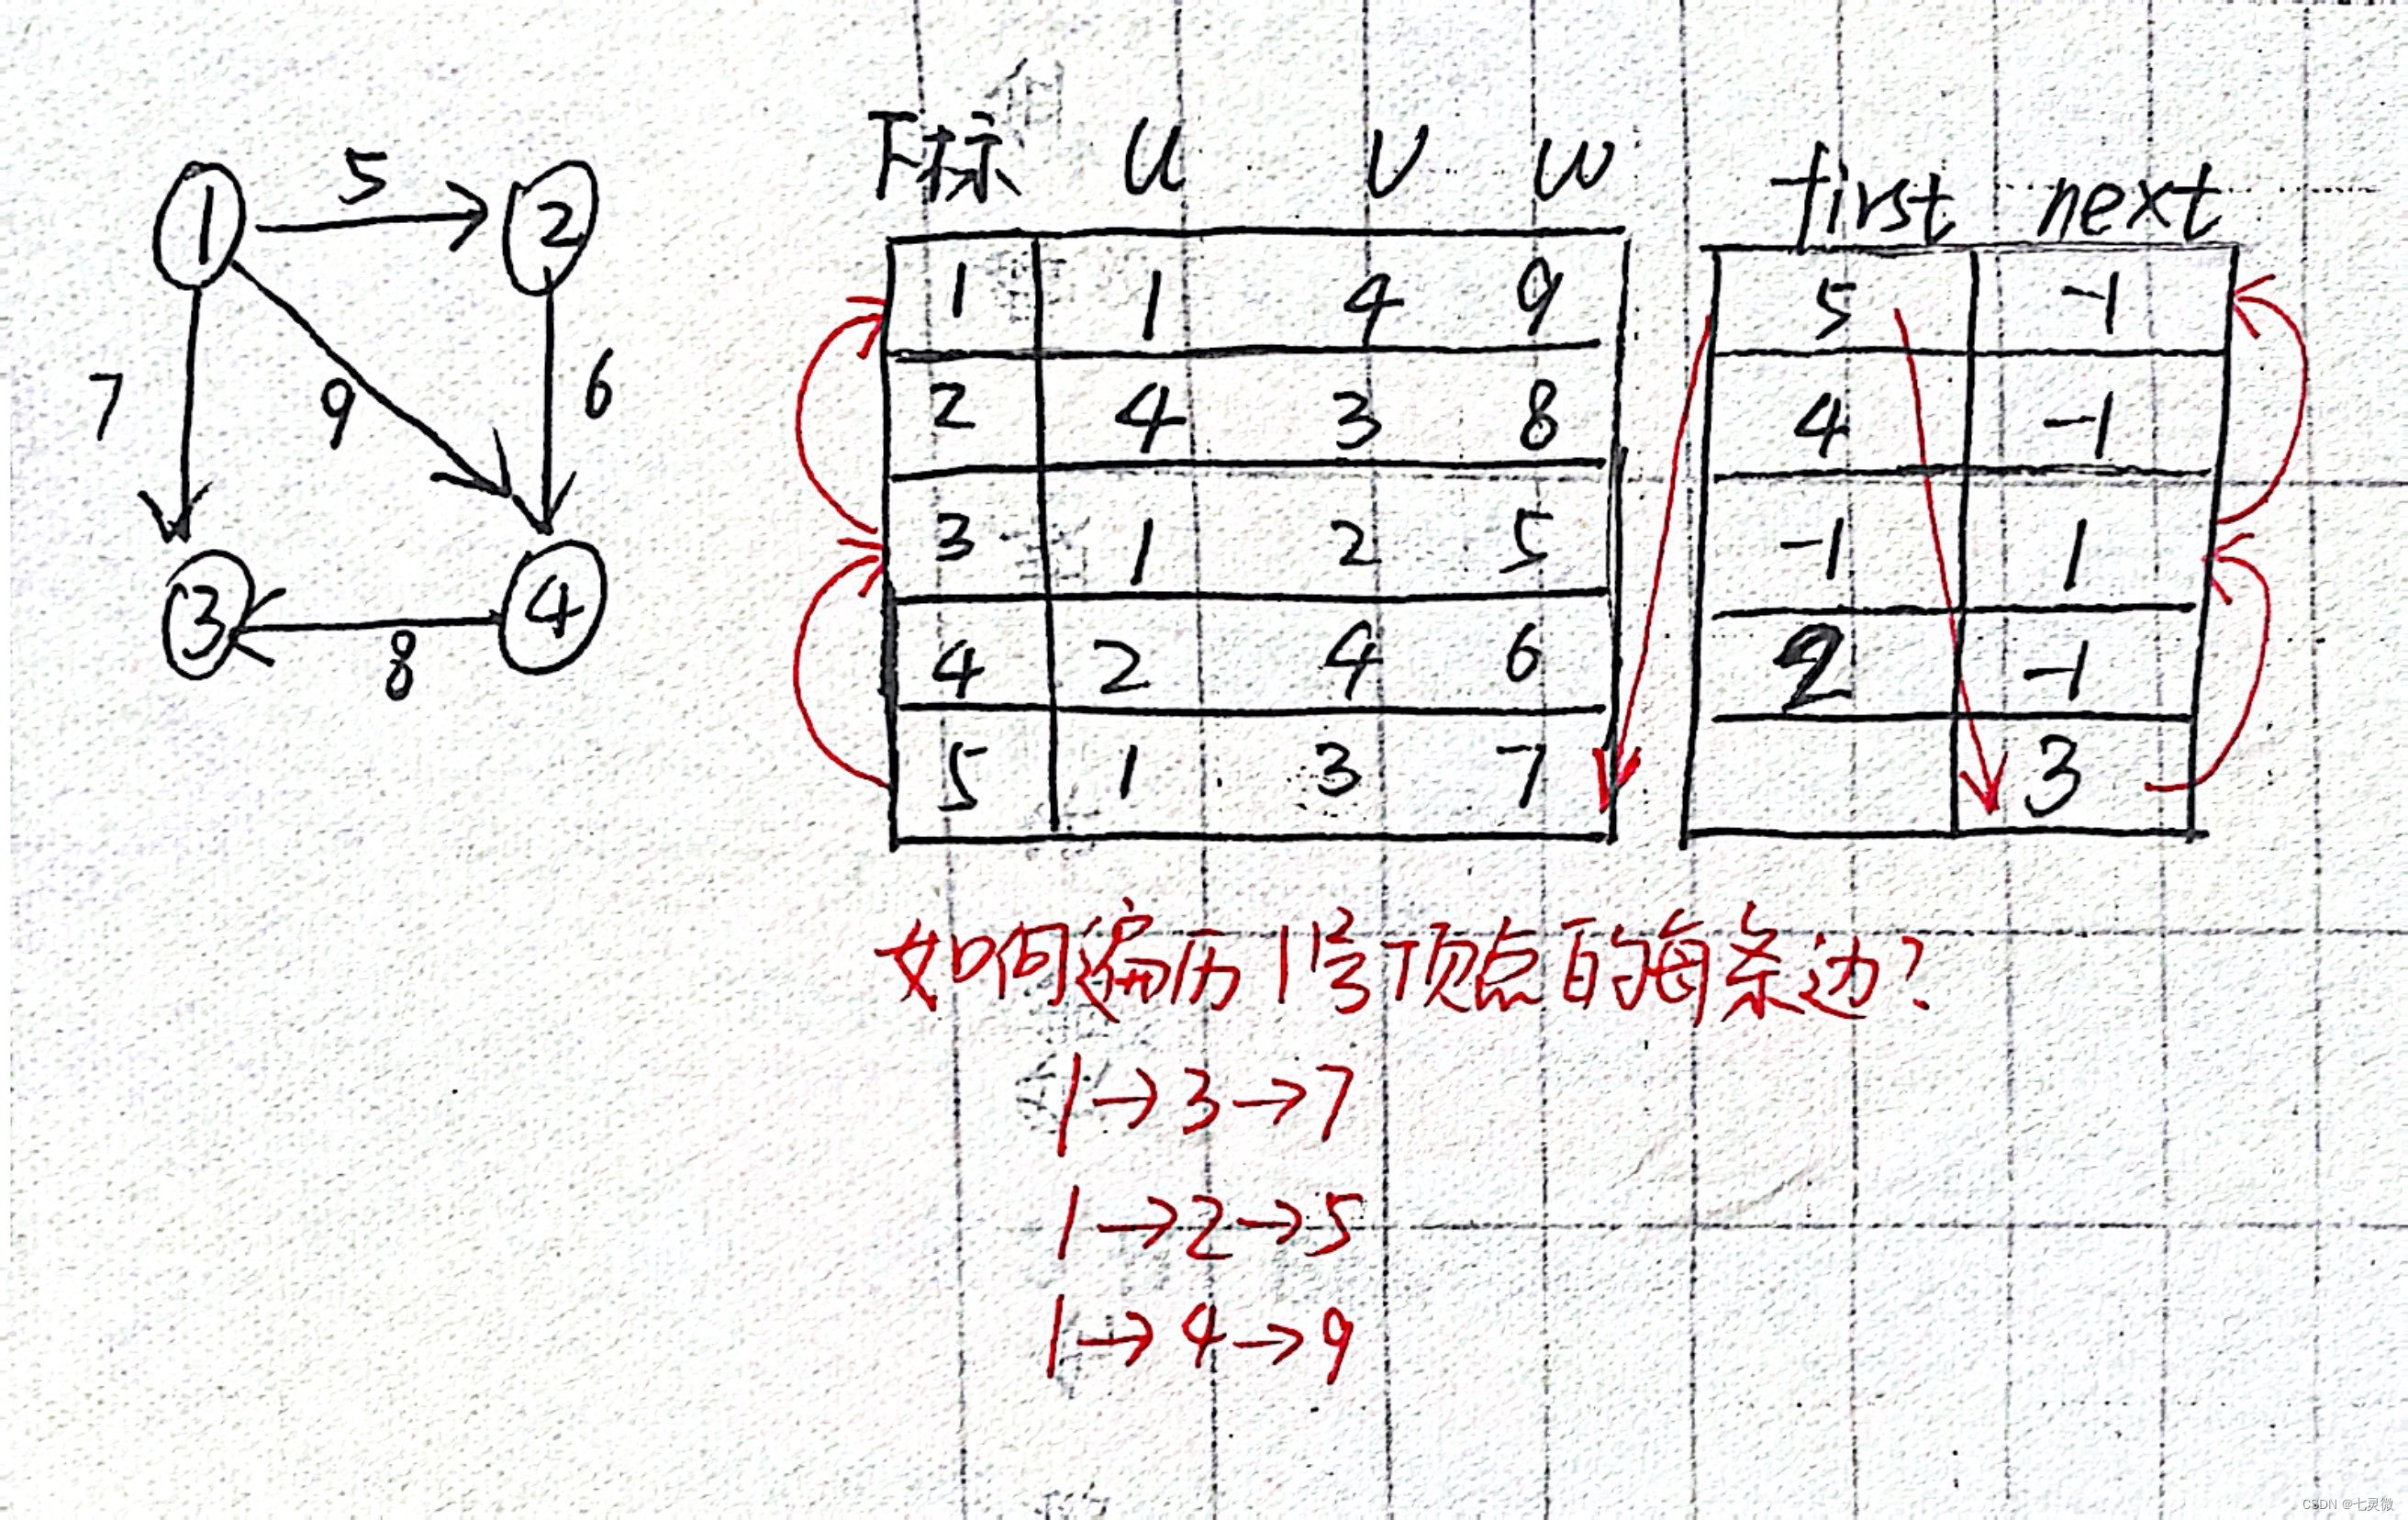 下标 u v w
first next
1 5 2
7 9 6
3 8 4
1 1 4 9 5 -1
2 4 3 8 4 -1
3 1 2 5 -1 1
4 2 4 6 2 -1
5 1 3 7 3
如何遍历1号顶点的每条边?
1→3→7
1→2→5
1→4→9
CSDN @七灵微